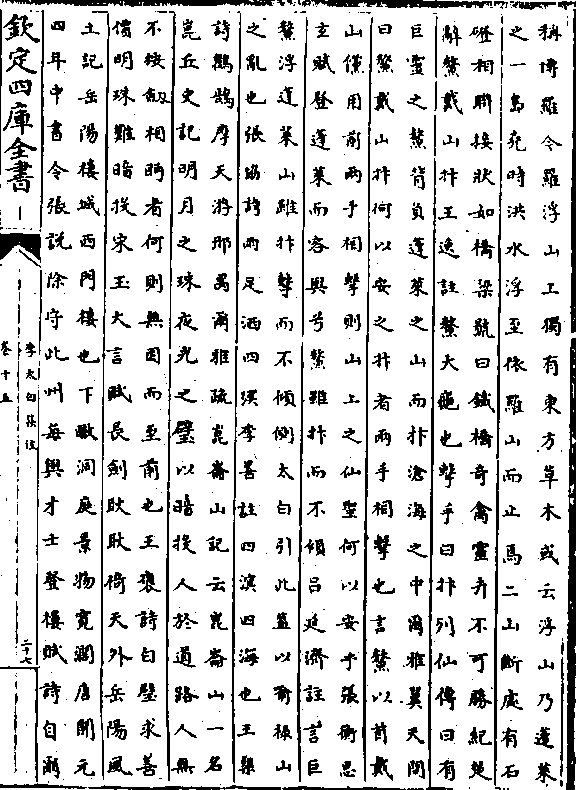 稱博羅令羅浮山工獨有東方草木或云浮山乃蓬萊
之一島堯時洪水浮至依羅山而止焉二山斷處有石
磴相聯接狀如橋梁號曰鐵橋奇禽靈卉不可勝紀楚
辭鼇戴山抃王逸註鼇大龜也擊手曰抃列仙傳曰有
巨靈之鼇背負蓬萊之山而抃滄海之中爾雅翼天問
曰鼇戴山抃何以安之抃者兩手相擊也言鼇以首戴
山僅用前兩手相擊則山上之仙聖何以安乎張衡思
玄賦登蓬萊而容與兮鼇雖抃而不傾呂延濟註言巨
鼇浮蓬萊山雖抃擊而不傾側太白引此蓋以喻祿山
之亂也張協詩雨足洒四溟李善註四溟四海也王粲
詩鸛鵠摩天游邢昺爾雅疏崑崙山記云崑崙山一名
崑丘史記明月之珠夜光之璧以暗投人於道路人無
不按劒相眄者何則無因而至前也王褒詩白璧求善
價明珠難暗投宋玉大言賦長劍耿耿倚天外岳陽風
土記岳陽樓城西門樓也下瞰洞庭景物寛濶唐開元
四年中書令張說除守此州每與才士登樓賦詩自爾
欽定四庫全書
李太白集注
卷十五
二十七